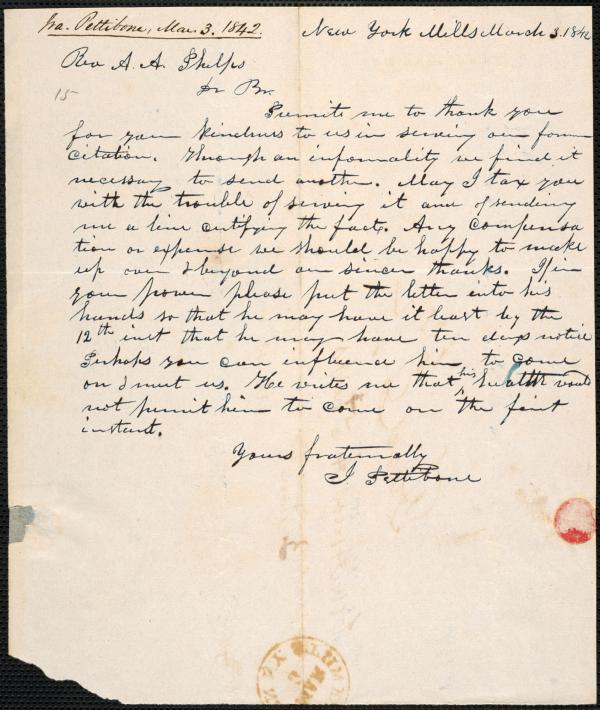 Ira. Pettibone, Mar. 3. 1842.
New York Mills March 3. 1842
Rev A. A. Phelps
15
Dr Br.
Permite me to thank you
for your kindness to us in serving our former
citation. Through an informality we find it
necessary to send another. May I tax you
with the trouble of serving it and of sending
me a line certifying the fact. Any compensa
tion or expense we should be happy to make
up over & beyond our sincer thanks. If in
your power please put the letter into his
hands so that he may have it least by the
12th inst that he may have ten days notice
Perhaps you can influence him to come
on & meet us. He writes me that his health would
not permit him to come on the first
instant.
Yours fraternally
I Pettibone
MAR